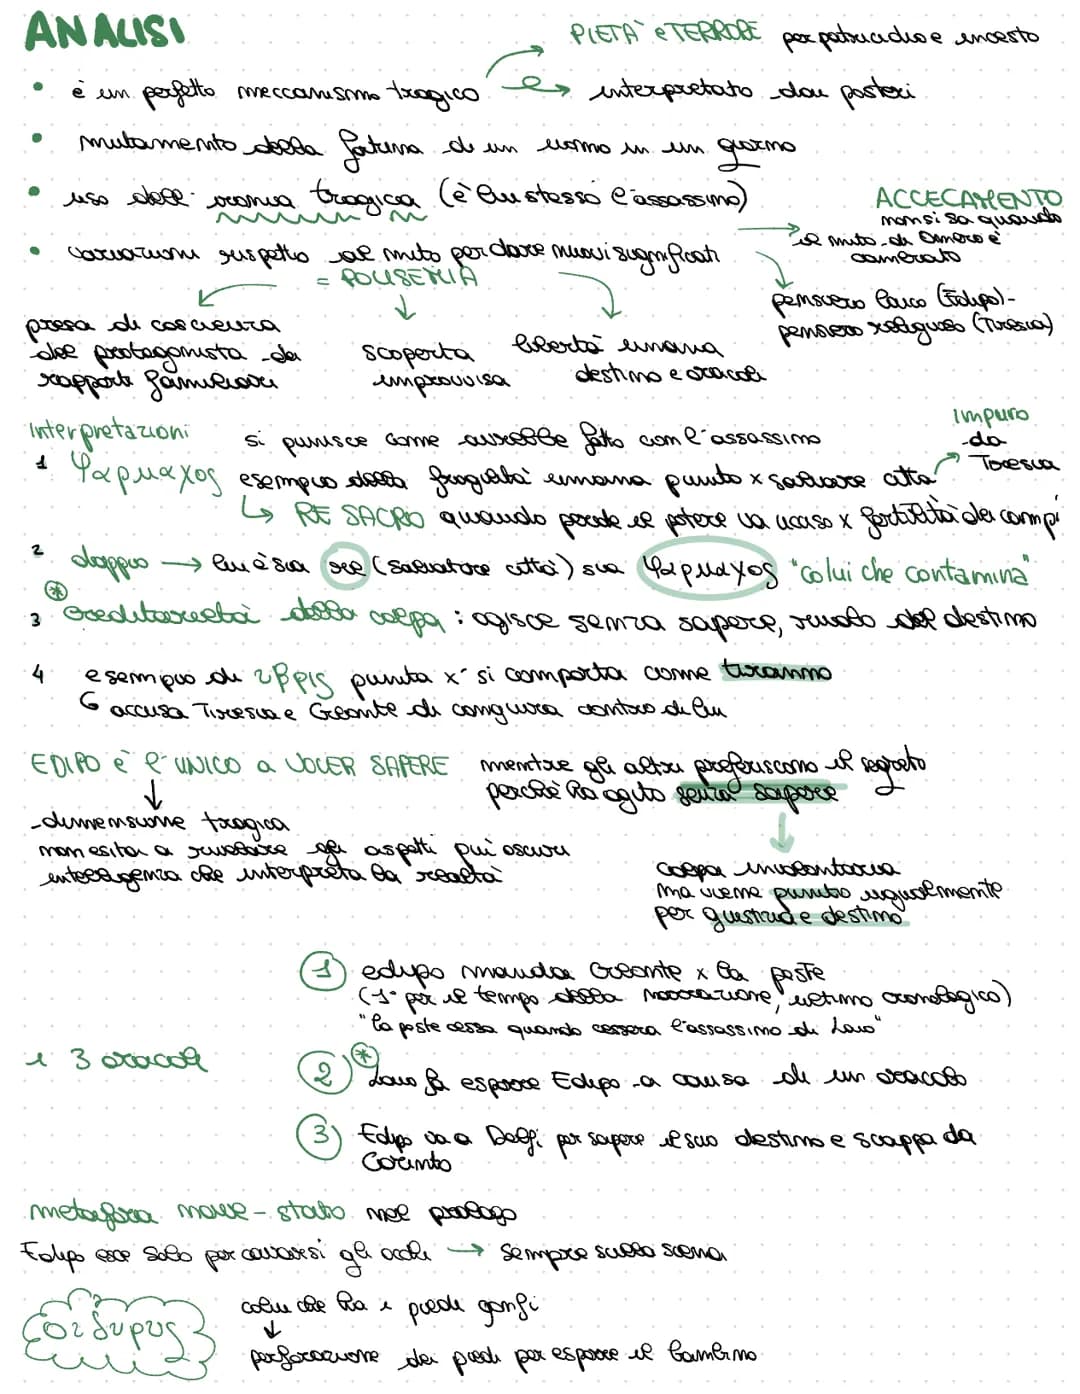 ANALISI
PIETÀ e TERRORE per patricidio e incesto
• è un perfetto meccanismo tragico e → interpretato dai posteri
• mutamento della fortuna di un uomo in un giorno
• uso dell'ironia tragica (è lui stesso l'assassino)
ACCECAMENTO
non si sa quando
il mito di Omero è
cambiato
• variazioni rispetto al mito per dare nuovi significati
= POLISEMIA
pensiero laico (Edipo)-
pensiero religioso (Tiresia)
presa di coscienza
del protagonista dei
rapporti familiari
scoperta
improvvisa
libertà umana
destino e oracoli
Interpretazioni
si punisce come avrebbe fatto con l'assassino
impuro
da
Tiresia
1 φαρμαχος esempio della fragilità umana punito x salvare città
↳ RE SACRO quando perde il potere va ucciso x fertilità dei campi
2 doppio → lui è sia re (salvatore città) sia φαρμαχος "colui che contamina"
*
3 ereditarietà della colpa : agisce senza sapere, ruolo del destino
4 esempio di υβρις punita x' si comporta come tiranno
↳ accusa Tiresia e Creonte di congiura contro di lui
EDIPO è l'UNICO a VOLER SAPERE mentre gli altri preferiscono il segreto
perché ha agito senza sapere
dimensione tragica
non esita a rivelare gli aspetti più oscuri
intelligenza che interpreta la realtà
colpa involontaria
ma viene punito ugualmente
per giustizia e destino
1 edipo manda Creonte x la peste
(1° per il tempo della narrazione, ultimo cronologico)
"la peste cessa quando cesserà l'assassino di Laio"
i 3 oracoli
2 * Laio fa esporre Edipo a causa di un oracolo
3 Edipo va a Delfi per sapere il suo destino e scappa da
Corinto
metafora nave - stato nel prologo
Edipo esce solo per cavarsi gli occhi → sempre sulla scena
colui che ha i piedi gonfi
↓
perforazione dei piedi per esporre il bambino